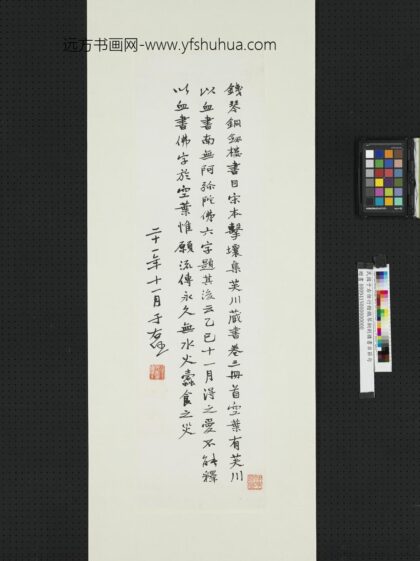 远方书画网-www.yfshuhua.com
鐵琴銅劍樓書目宋本擊壤集芙川藏書卷三冊首空葉有芙川
以血書南無阿弥陀佛六字題其後云乙巳十一月得之愛不能釋
以血書佛字於空葉惟願流傳永久無水火蠹食之災
二十一年十一月于右任